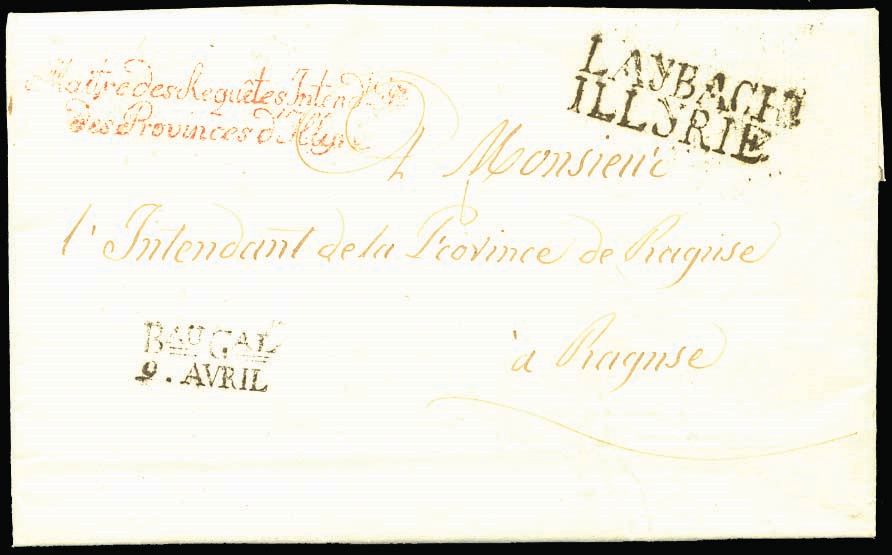 Maître des Requêtes Intend.t G.l
des Provinces d'Illyrie
LAYBACH
ILLYRIE
A Monsieur
l'Intendant de la Province de Raguse
à Raguse
BAU GAL
9. AVRIL